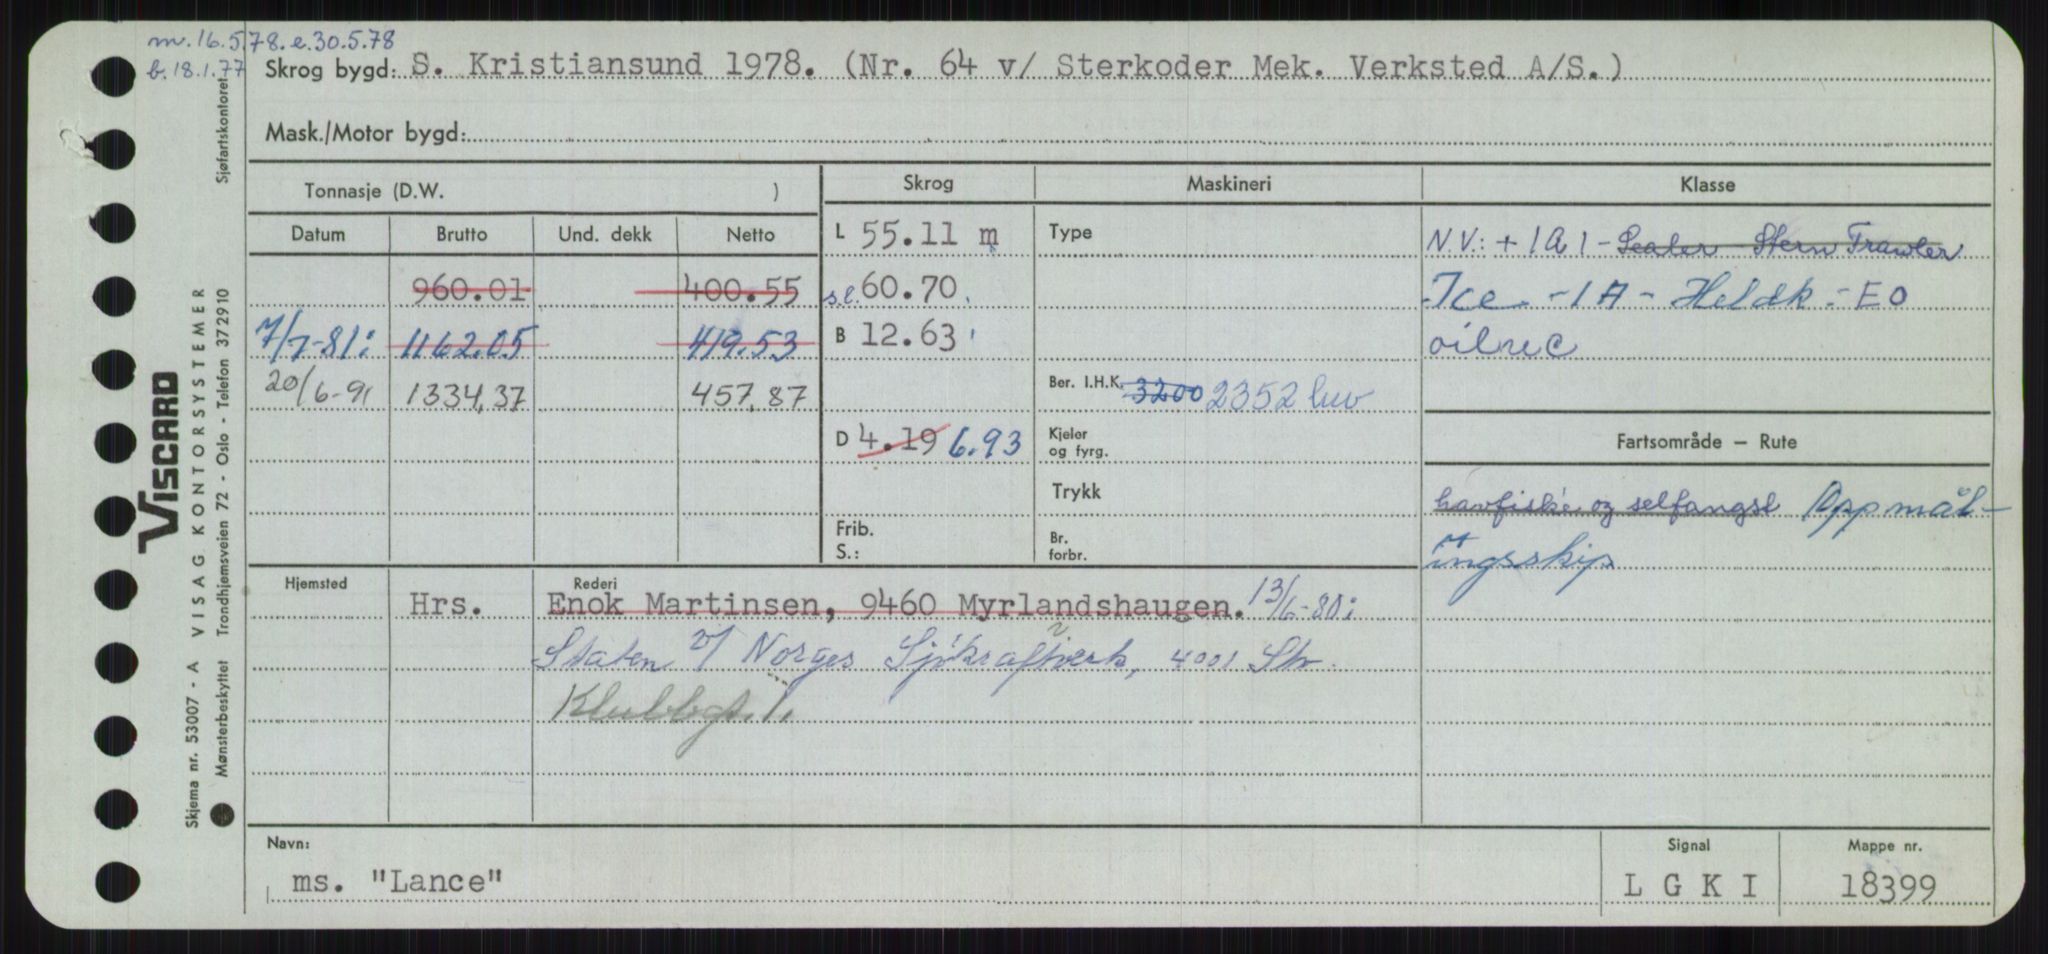 m. 16.5.78. e. 30.5.78
b. 18.1.77
Skrog bygd: S. Kristiansund 1978. (Nr. 64 v/ Sterkoder Mek. Verksted A/S.)
Mask./Motor bygd:
Tonnasje (D.W. )
Skrog Maskineri Klasse
Datum Brutto Und. dekk Netto
L 55.11 m
Type
N.V.: + 1A1 - Sealer - Stern Trawler
960.01 400.55
s.l. 60.70
Ice - 1A - Heldk - EO
7/7-81: 1162.05 419.53
B 12.63
oilrec
20/6-91 1334,37 457,87
Ber. I.H.K. 3200 2352 kw
D 4.19 6.93
Kjeler
og fyrg.
Fartsområde – Rute
Trykk
havfiske og selfangst Oppmål-
Frib.
S.:
Br.
forbr.
ingsskip
Hjemsted
Rederi
Hrs. Enok Martinsen, 9460 Myrlandshaugen. 13/6-80:
Staten v/ Norges Sjökraftverk, 4001 Stv.
Klubbgt. 1.
Navn: Signal Mappe nr.
ms. "Lance" L G K I 18399
Skjema nr. 53007 - A VISAG KONTORSYSTEMER
Mønsterbeskyttet Trondhjemsveien 72 - Oslo - Telefon 372910
Sjøfartskontoret
VISCARD